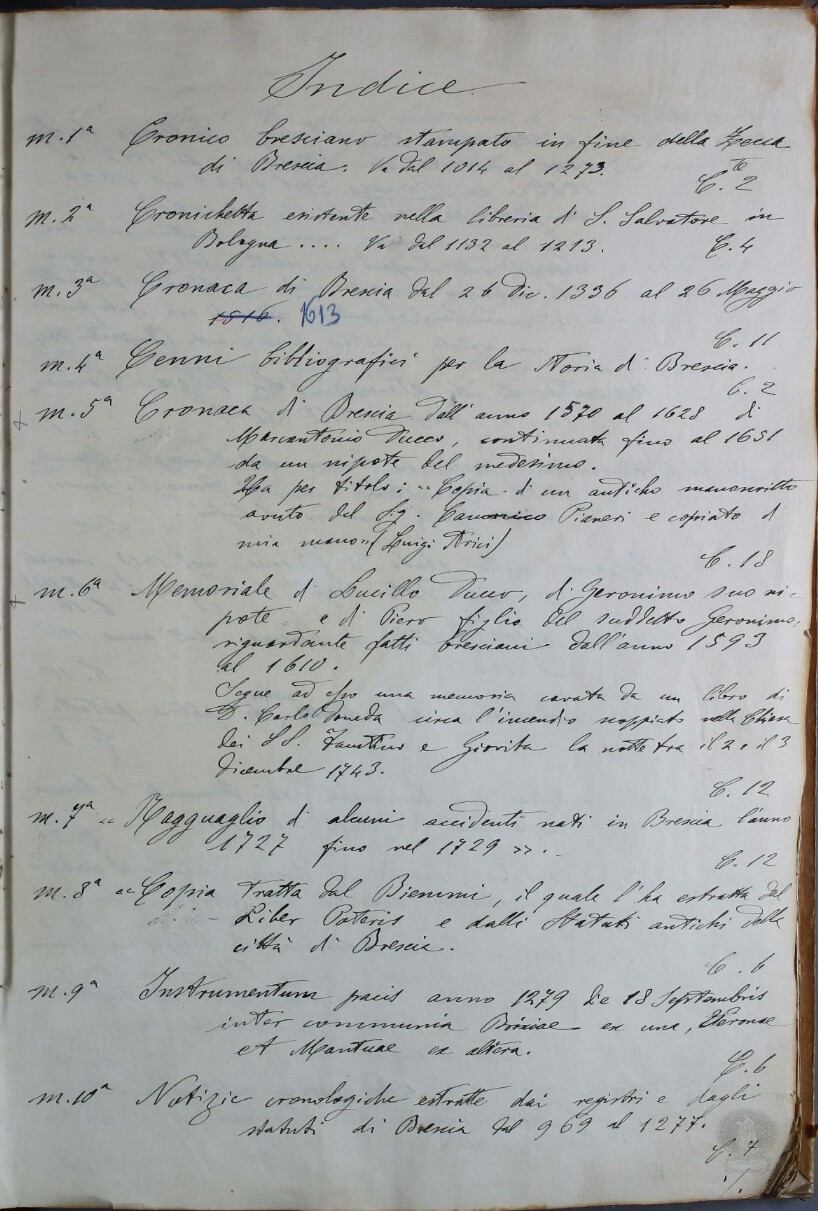 Indice
m. 1ª Cronico bresciano stampato in fine della Zecca
di Brescia. Va dal 1014 al 1273.
C.te 2
m. 2ª Cronichetta esistente nella libreria di S. Salvatore in
Bologna .... Va dal 1132 al 1213. C. 4
m. 3ª Cronaca di Brescia dal 26 Dic. 1336 al 26 Maggio
1516. 1613
C. 11
m. 4ª Cenni bibliografici per la Storia di Brescia.
C. 2
+ m. 5ª Cronaca di Brescia dall'anno 1570 al 1628 di
Marcantonio Ducco, continuata fino al 1651
da un nipote del medesimo.
Ha per titolo: "Copia di un antico manoscritto
avuto del Sig. Canonico Pianeri e copiato di
mia mano" (Luigi Arici)
C. 18
+ m. 6ª Memoriale di Lucillo Ducco, di Geronimo suo ni-
pote e di Piero figlio del suddetto Geronimo,
riguardante fatti bresciani dall'anno 1593
al 1610.
Segue ad esso una memoria cavata da un libro di
D. Carlo Doneda circa l'incendio scoppiato nella Chiesa
dei SS. Faustino e Giovita la notte tra il 2 e il 3
Dicembre 1743.
C. 12
m. 7ª "Ragguaglio di alcuni accidenti nati in Brescia l'anno
1727 fino nel 1729 ».
C. 12
m. 8ª "Copia tratta dal Biemmi, il quale l'ha estratta dal
Liber Poteris e dalli Statuti antichi della
città di Brescia.
C. 6
m. 9ª Instrumentum pacis anno 1279 die 18 Septembris
inter communia Brixiae ex una, Veronae
et Mantuae ex altera.
C. 6
m. 10ª Notizie cronologiche estratte dai registri e dagli
statuti di Brescia dal 969 al 1277.
C. 7
./.